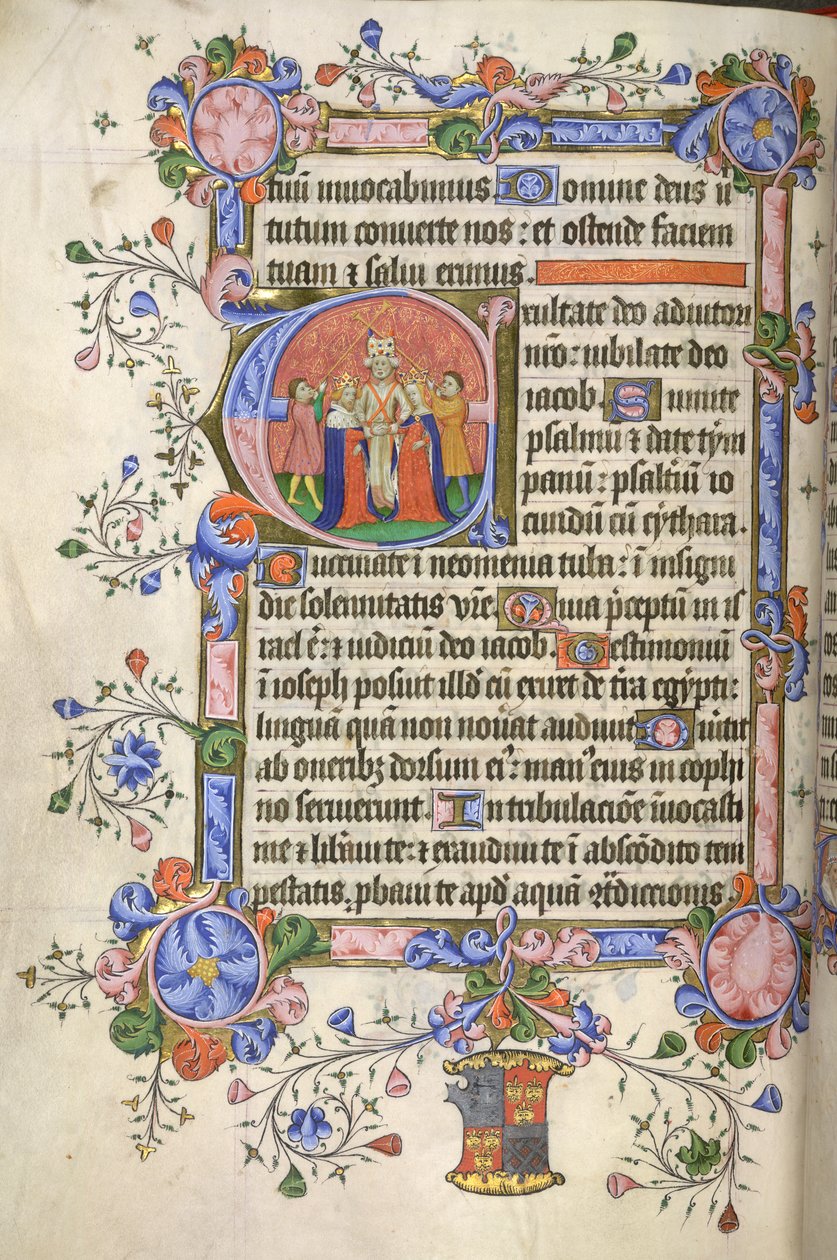 tuū inuocabimus. Domine deus uir
tutum conuerte nos : et ostende faciem
tuam ⁊ salui erimus.
Exultate deo adiutori
nr̄o : iubilate deo
iacob. Sumite
psalmū ⁊ date tȳm
panū : psaltiū io
cundū cū cythara.
Buccinate ī neomenia tuba : ī insigni
die solennitatis vr̄e. Quia p̄ceptū in is
rael ē : ⁊ iudiciū deo iacob. Testimoniū
ī ioseph posuit illd̓ cū exiret de tr̄a egypti :
linguā quā non nou̓at audiuit. Diu̓tit
ab oneribȝ dorsum eiꝰ : manꝰ eius in cophi
no seruierunt. In tribulaciōe īuocasti
me ⁊ lib̓aui te : ⁊ exaudiui te ī abscōdito tem
pestatis, ꝓbaui te apd̓ aquā